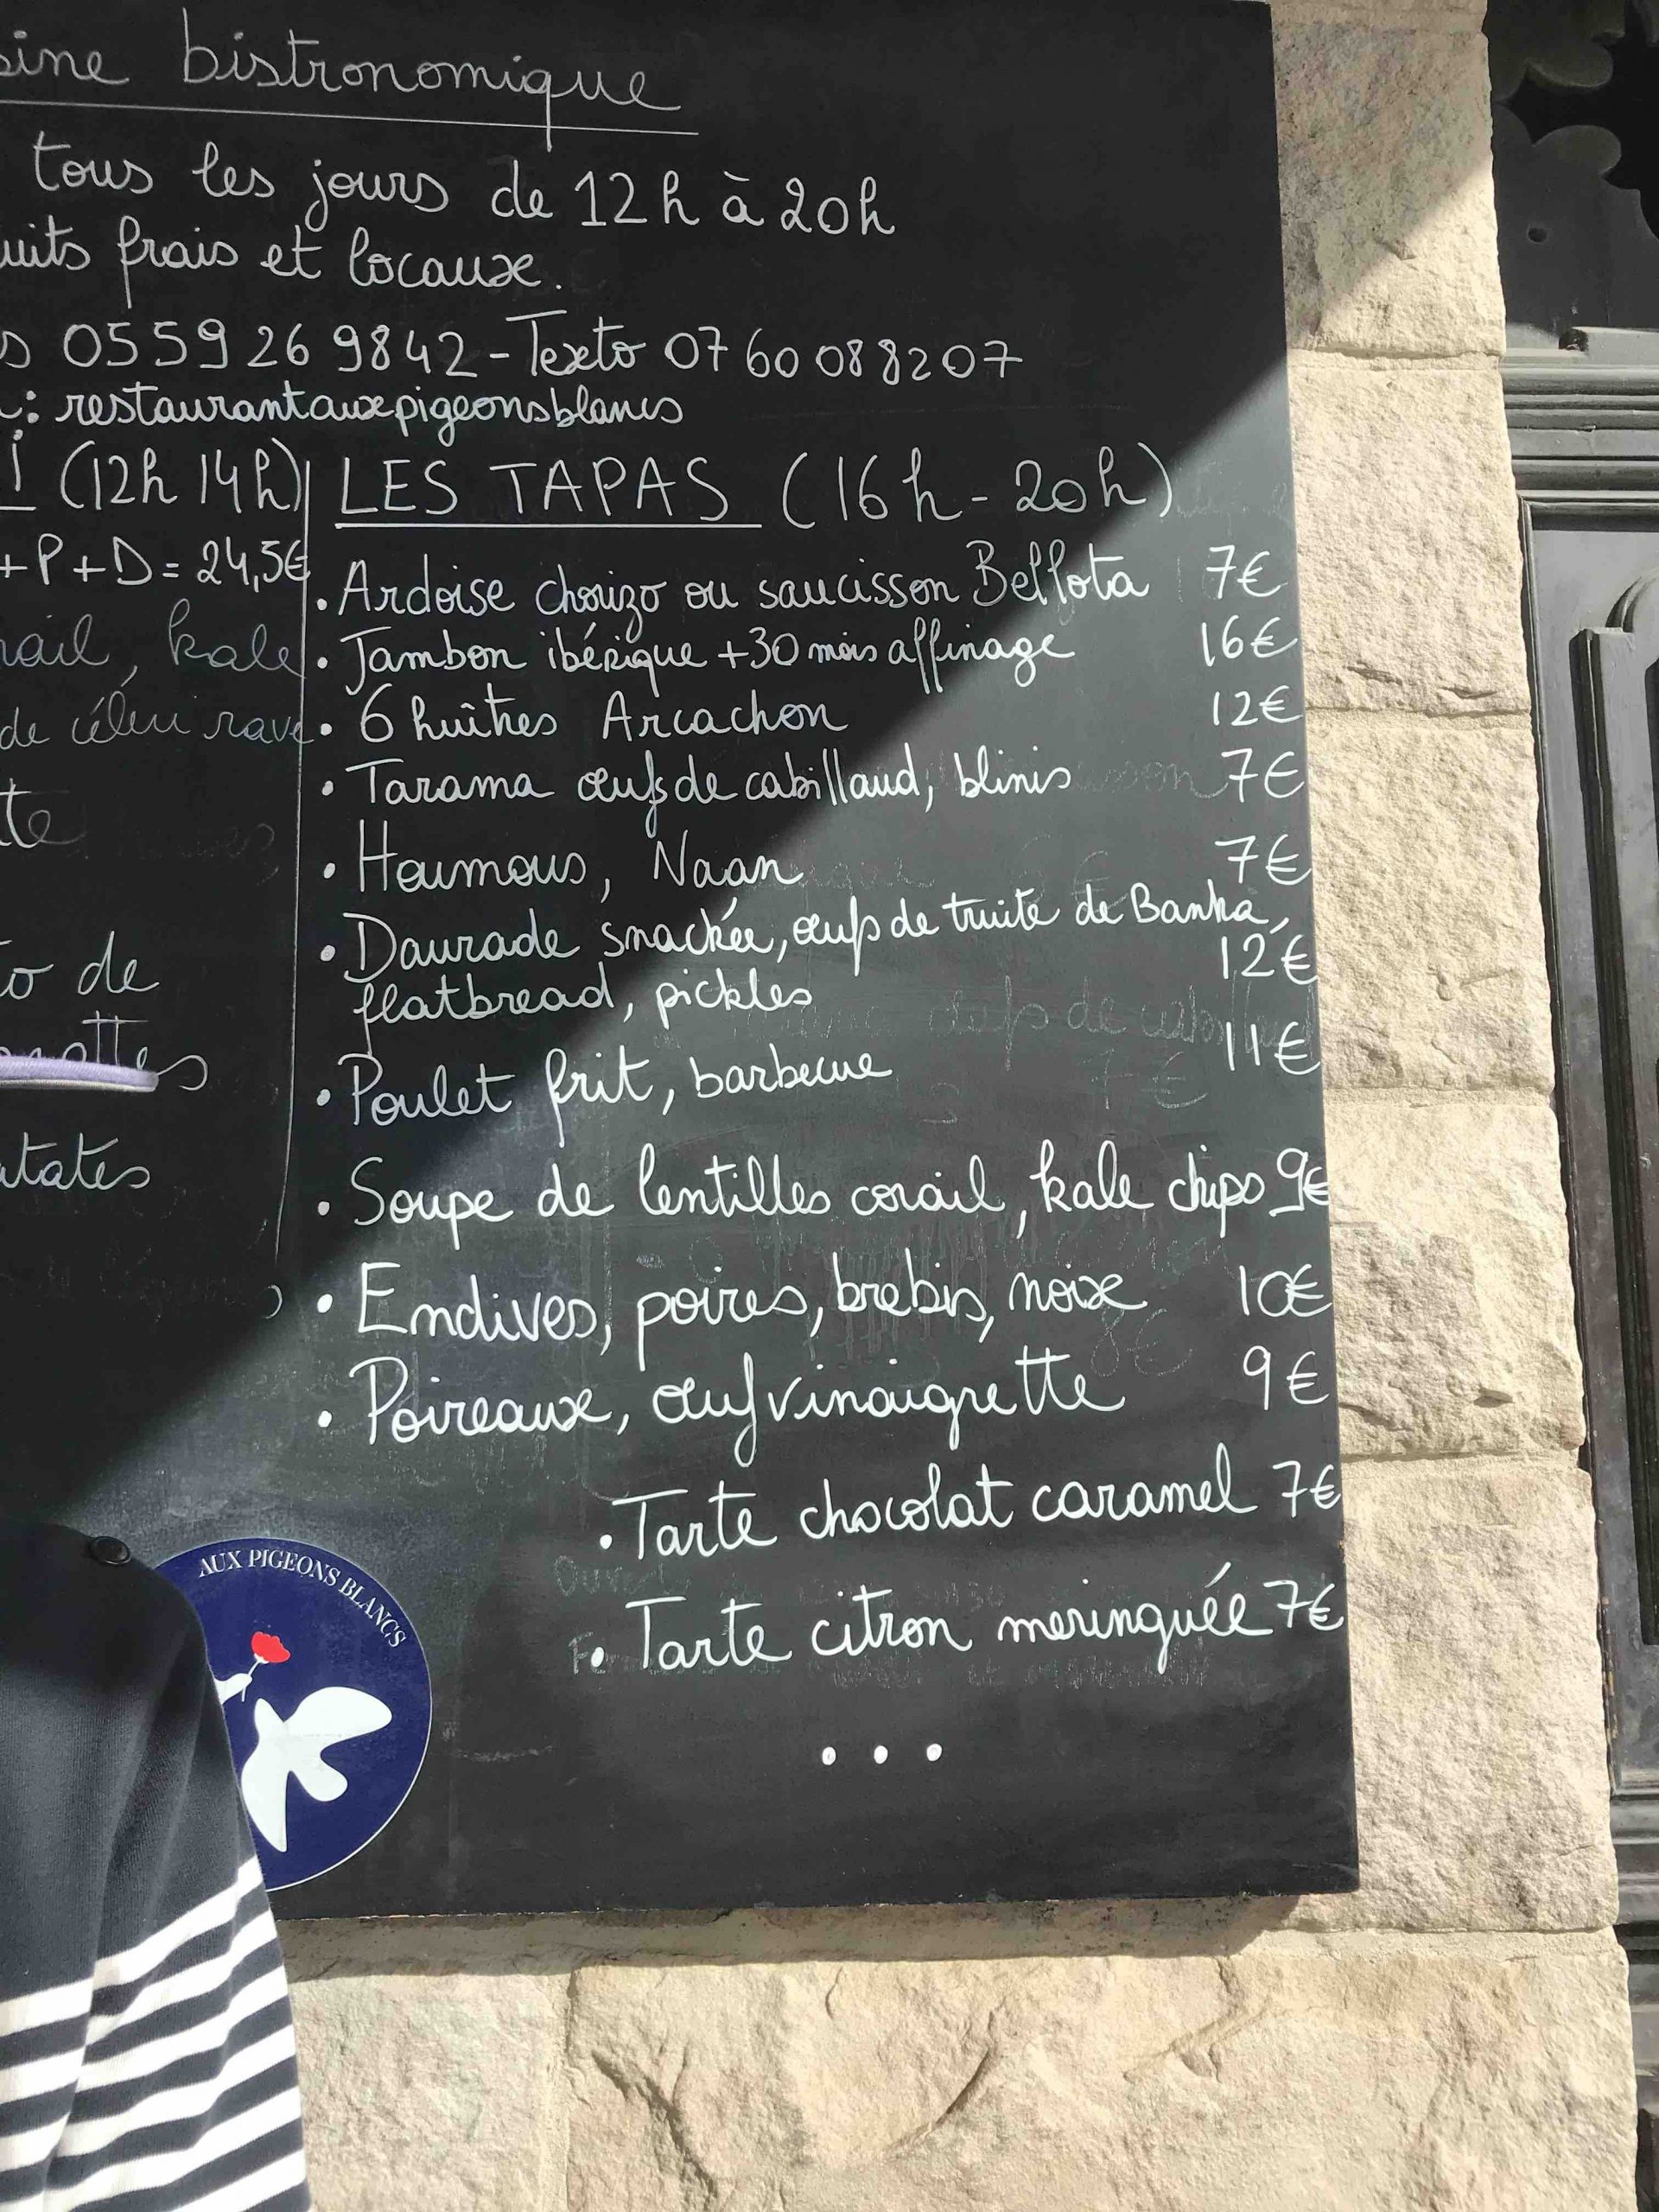 sine bistronomique
tous les jours de 12h à 20h
uits frais et locaux.
s 05 59 26 98 42 - Texto 07 60 08 82 07
: restaurantauxpigeonsblancs
I (12h 14h)
+P+D = 24,5€
rail, kale
de céleri rave
te
o de
ottes
tates
LES TAPAS (16h - 20h)
• Ardoise chorizo ou saucisson Bellota 7€
• Jambon ibérique +30 mois affinage 16€
• 6 huîtres Arcachon 12€
• Tarama œufs de cabillaud, blinis 7€
• Houmous, Naan 7€
• Daurade snackée, œufs de truite de Banka,
flatbread, pickles 12€
• Poulet frit, barbecue 11€
• Soupe de lentilles corail, kale chips 9€
• Endives, poires, brebis, noix 10€
• Poireaux, œuf vinaigrette 9€
• Tarte chocolat caramel 7€
• Tarte citron meringuée 7€
...
AUX PIGEONS BLANCS